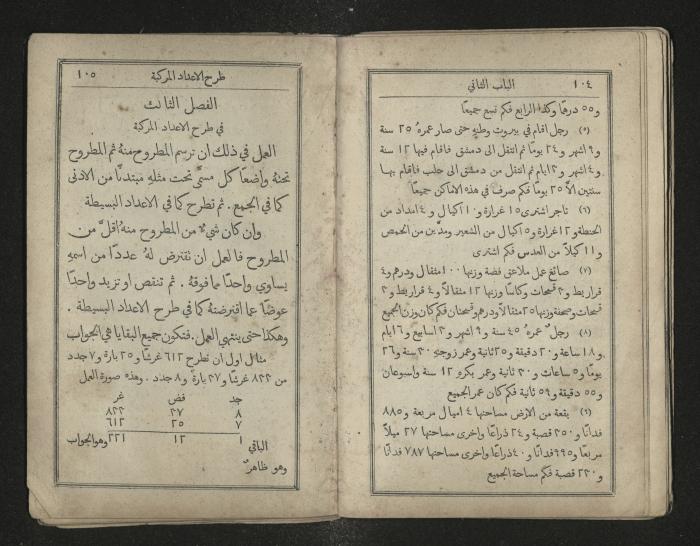 ١٠٤ الباب الثاني
و٥٥ درهمًا وكذا الرابع فكم تسع جميعًا
(٥) رجل اقام في بيروت وطنهِ حتى صار عمرهُ ٢٥ سنة
و٩ اشهر و٢٤ يومًا ثم انتقل الى دمشق فاقام فيها ١٢ سنة
و٤ اشهر و٣ ايام ثم انتقل من دمشق الى حلب فاقام بها
سنتين الا ٢٥ يومًا فكم صرف في هذه الاماكن جميعًا
(٦) تاجر اشترى ١٥ غرارة و١٠ اكيال و٤ امداد من
الحنطة و١٢ غرارة و٥ اكيال من الشعير ومدَّين من الحمص
و١١ كيلًا من العدس فكم اشترى
(٧) صائغ عمل ملاعق فضة وزنها ١٠٠ مثقال ودرهم و٤
قراريط و٣ قمحات وكاسًا وزنها ١٢ مثقالًا و٤ قراريط و٢
قمحات وصحنة وزنها ٢٥ مثقالًا ودرهم وقمحتان فكم كان وزن الجميع
(٨) رجل عمرهُ ٤٥ سنة و٩ اشهر و٣ اسابيع و٦ ايام
و١٨ ساعة و٢٠ دقيقة و٢٥ ثانية وعمر زوجتهِ ٣٠ سنة و٢٦
يومًا و٥ ساعات و٣٠ ثانية وعمر بكرهِ ١٢ سنة واسبوعان
و٥٥ دقيقة و٥٩ ثانية فكم كان عمر الجميع
(٩) بقعة من الارض مساحتها ٤ اميال مربعة و٨٨٥
فدانًا و٣٥٠ قصبة و٢٤ ذراعًا واخرى مساحتها ٢٧ ميلًا
مربعًا و٩٩٥ فدانًا و٤٠ ذراعًا واخرى مساحتها ٧٨٧ فدانًا
و٢٣٠ قصبة فكم مساحة الجميع
طرح الاعداد المركبة ١٠٥
الفصل الثالث
في طرح الاعداد المركبة
العمل في ذلك ان ترسم المطروح منهُ ثم المطروح
تحتهُ واضعًا كل مسمًّى تحت مثلهِ مبتدئًا من الادنى
كما في الجمع. ثم تطرح كما في الاعداد البسيطة
وان كان شيءٌ من المطروح منهُ اقلَّ من
المطروح فالعمل ان تقترض لهُ عددًا من اسمهِ
يساوي واحدًا مما فوقهُ. ثم تنقص او تزيد واحدًا
عوضًا عما اقترضتهُ كما في طرح الاعداد البسيطة.
وهكذا حتى ينتهي العمل. فتكون جميع البقايا هي الجواب
مثال اول ان نطرح ٦١٢ غرشًا و٢٥ بارة و٧ جدد
من ٨٣٣ غرشًا و٣٧ بارة و٨ جدد. وهذه صورة العمل
جد فض غر
٨ ٣٧ ٨٣٣
٧ ٢٥ ٦١٢
الباقي ١ ١٢ ٢٢١ وهو الجواب
وهو ظاهرٌ